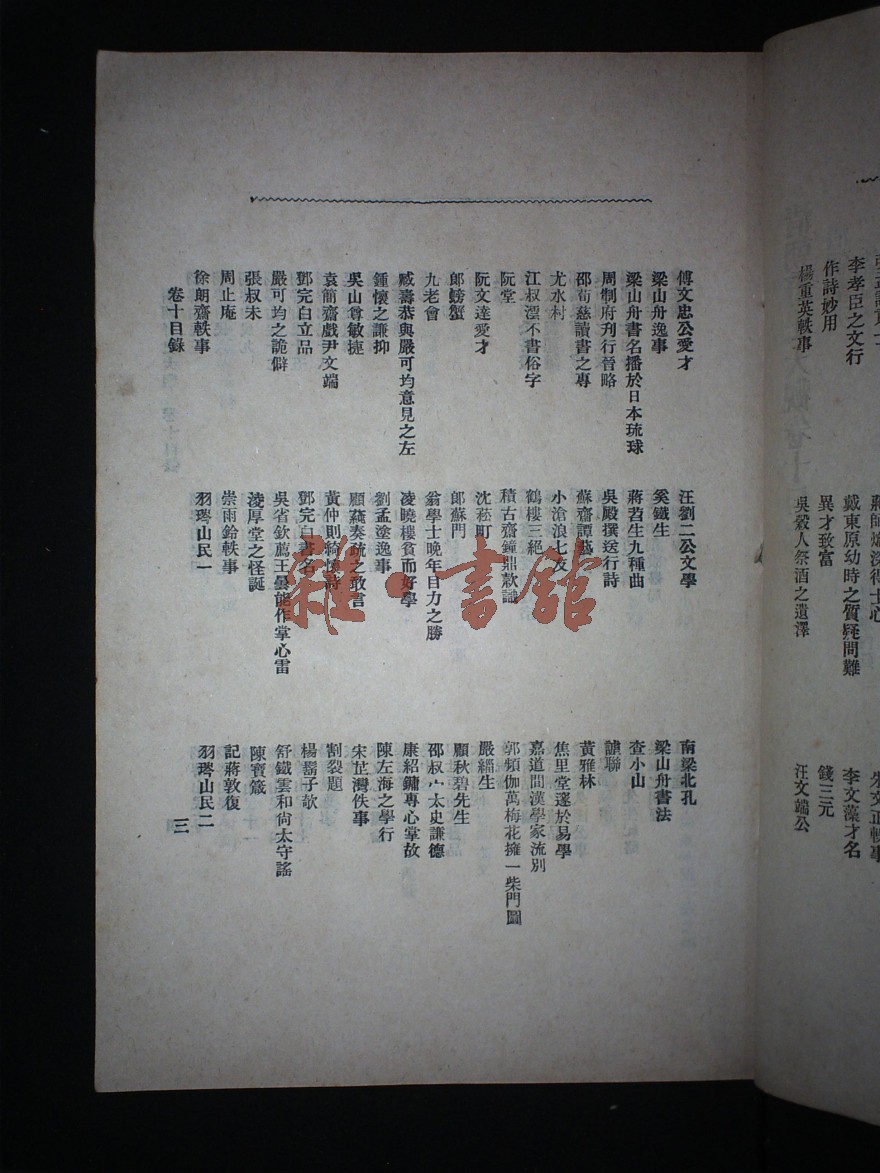 李孝臣之文行 戴東原幼時之質疑問難 李文藻才名
作詩妙用 異才致富 錢三元
楊重英軼事 吳穀人祭酒之遺澤 汪文端公
傅文忠公愛才 汪劉二公文學 南梁北孔
梁山舟逸事 奚鐵生 梁山舟書法
梁山舟書名播於日本琉球 蔣苕生九種曲 查小山
周制府刊行晉略 吳殿撰送行詩 聯
邵荀慈讀書之專 蘇齋譚藝 黃雅林
尤水村 小滄浪七友 焦里堂邃於易學
江叔澐不書俗字 鶴樓三絕 嘉道間漢學家流別
阮堂 積古齋鐘鼎款識 郭頻伽萬梅花擁一柴門圖
阮文達愛才 沈菘町 嚴緇生
郎螃蟹 郎蘇門 顧秋碧先生
九老會 翁學士晚年目力之勝 邵叔宀太史謙德
臧壽恭與嚴可均意見之左 凌曉樓貧而好學 康紹鏞專心掌故
鍾懷之謙抑 劉孟塗逸事 陳左海之學行
吳山尊敏捷 顧蒓奏疏之敢言 宋芷灣佚事
袁簡齋戲尹文端 黃仲則綺懷詩 割裂題
鄧完白立品 鄧完白書名 楊鬍子歌
嚴可均之詭僻 吳省欽薦王曇能作掌心雷 舒鐵雲和尚太守謠
張叔未 淩厚堂之怪誕 陳寶箴
周止庵 崇雨鈴軼事 記蔣敦復
徐朗齋軼事 羽琌山民一 羽琌山民二
卷十目錄 三
雜·書館